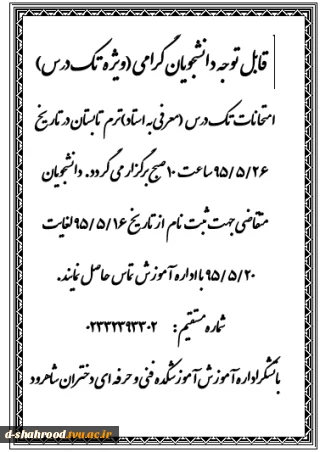 قابل توجه دانشجویان گرامی (ویژه تک درس)
امتحانات تک درس (معرفی به استاد)ترم تابستان در تاریخ
۹۵/۵/۲۶ ساعت ۱۰ صبح برگزار می گردد. دانشجویان
متقاضی جهت ثبت نام از تاریخ ۹۵/۵/۱۶ لغایت
۹۵/۵/۲۰ با اداره آموزش تماس حاصل نمایند.
شماره مستقیم: ۰۲۳۳۲۳۹۳۳۰۲
باتشکر اداره آموزش آموزشکده فنی و حرفه ای دختران شاهرود
d-shahrood.tvu.ac.ir